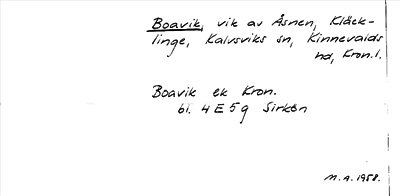 Boavik, vik av Åsnen, Kläck-
linge, Kalvsviks sn, Kinnevalds
hd, Kron.l.
Boavik ek Kron.
bl. 4 E 5 g Sirkön
M.A. 1958.